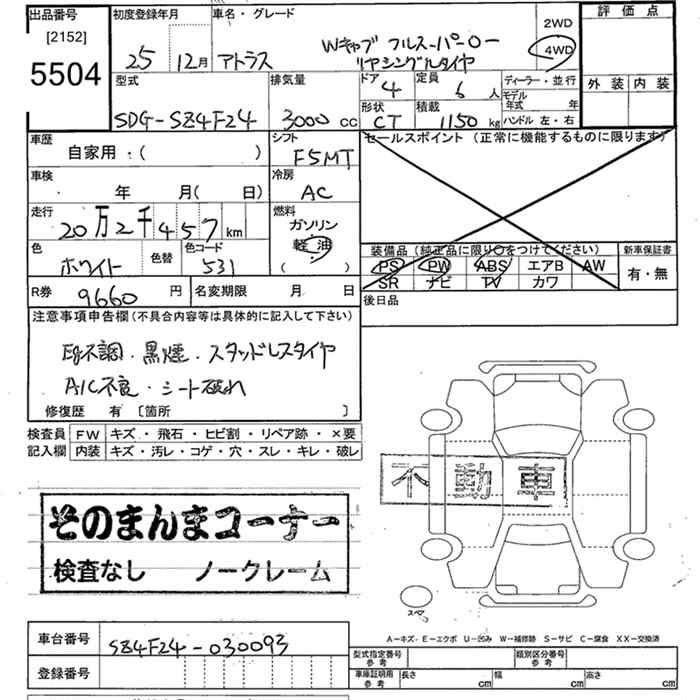 出品番号
[2152]
5504
初度登録年月
25 12月
車名・グレード
アトラス
Wキャブ フルスーパーロー
リヤシングルタイヤ
2WD
4WD
評価点
外装 内装
型式
SDG-SZ4F24
排気量
3000 cc
ドア
4
定員
6 人
形状
CT
積載
1150 kg
ディーラー・並行
モデル
年式 年
ハンドル 左・右
車歴
自家用・( )
シフト
F5MT
セールスポイント(正常に機能するものに限ります)
車検
年 月( 日)
冷房
AC
走行
20万2千457 km
燃料
ガソリン
軽油
( )
色
ホワイト
色替
色コード
531
装備品(純正品に限り○をつけてください)
PS PW ABS エアB AW
SR ナビ TV カワ
新車保証書
有・無
R券
9660 円
名変期限 月 日
後日品
注意事項申告欄(不具合内容等は具体的に記入して下さい)
Eg不調・黒煙・スタッドレスタイヤ
A/C不良・シート破れ
修復歴 有 〔箇所 〕
検査員
記入欄
FW キズ・飛石・ヒビ割・リペア跡・×要
内装 キズ・汚レ・コゲ・穴・スレ・キレ・破レ
不動車
そのまんまコーナー
検査なし ノークレーム
スペア
A-キズ・E-エクボ U-凹み W-補修跡 S-サビ C-腐食 XX-交換済
車台番号
SZ4F24-030093
登録番号
型式指定番号
参考
類別区分番号
参考
車庫証明用
参考
長さ cm
幅 cm
高さ cm